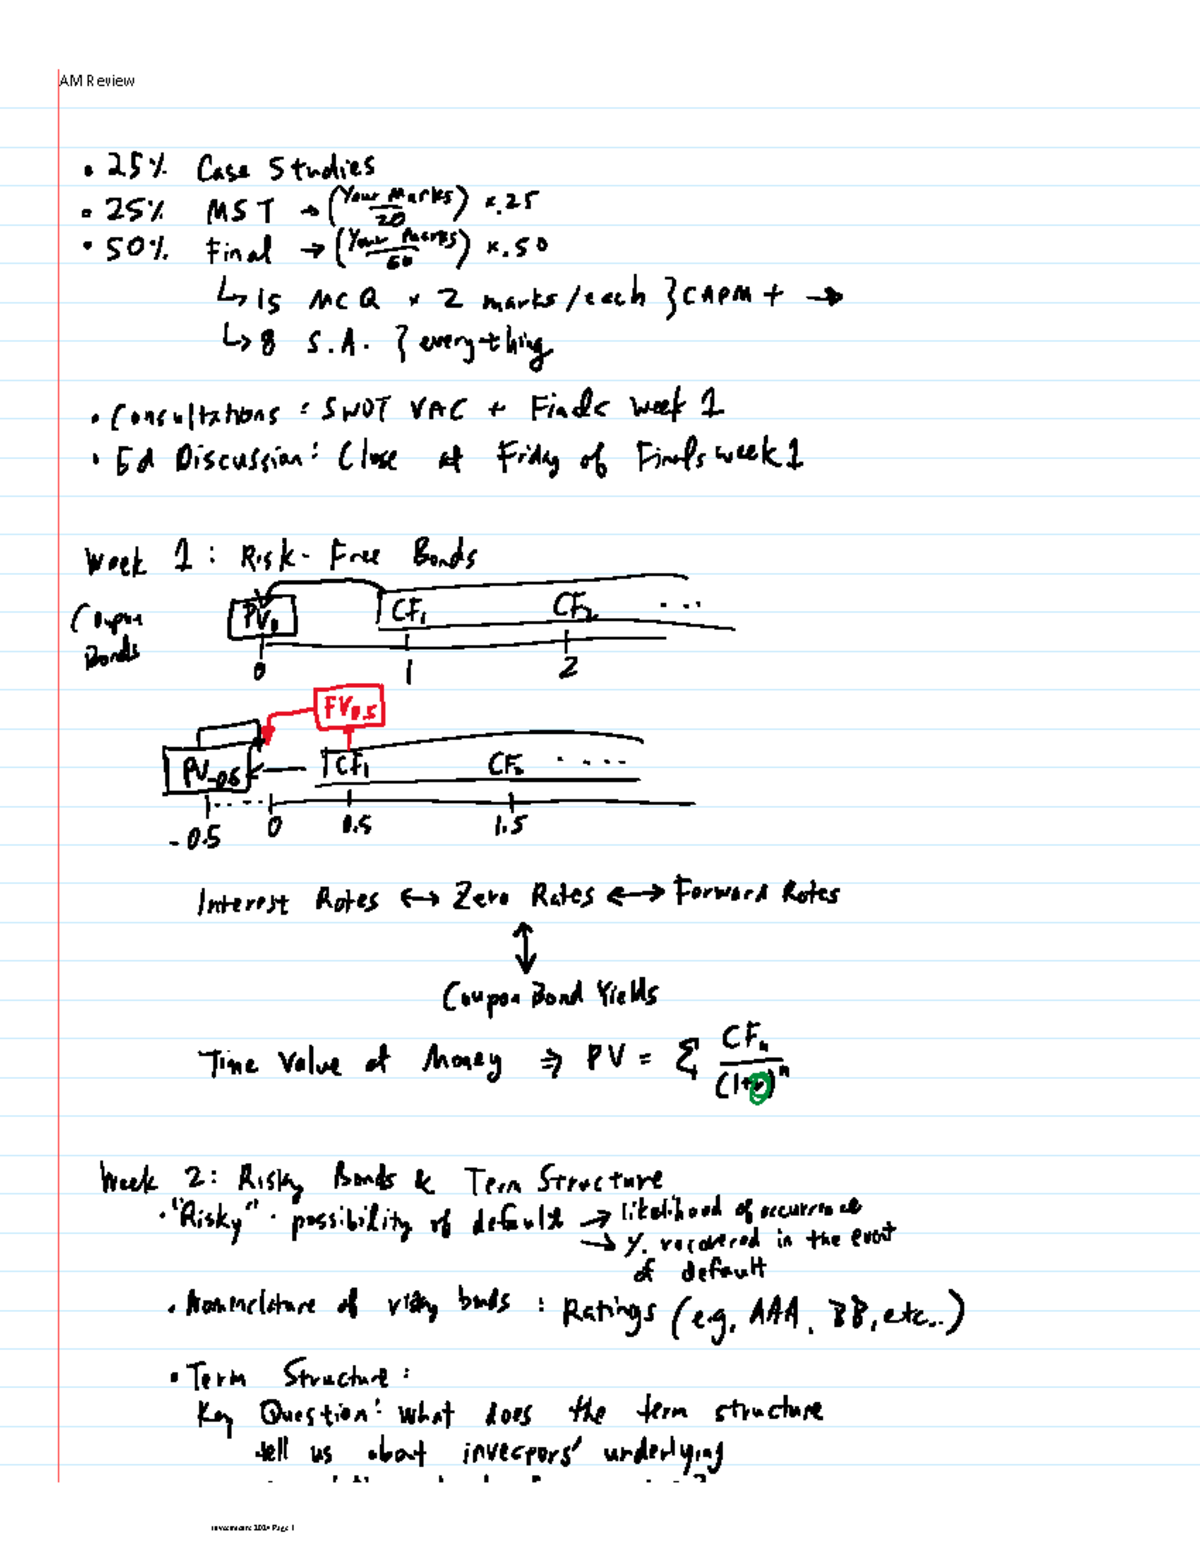 AM Review
• 25% Case Studies
• 25% MST → (Your Marks / 20) ×.25
• 50% Final → (Your Marks / 60) ×.50
↳ 15 MCQ × 2 marks/each } CAPM + →
↳ 8 S.A. } everything
• Consultations: SWOT VAC + Finals Week 1
• Ed Discussion: Close at Friday of Finals week 1
Week 1: Risk-Free Bonds
Coupon Bonds
PV₀ CF₁ CF₂ ...
0 1 2
FV₀.₅
PV₋₀.₅ CF₁ CF₂ ....
-0.5 0 0.5 1.5
Interest Rates ↔ Zero Rates ↔ Forward Rates
↕
Coupon Bond Yields
Time Value of Money ⇒ PV = Σ CFₙ / (1+r)ⁿ
Week 2: Risky Bonds & Term Structure
• "Risky" · possibility of default → likelihood of occurrence
→ % recovered in the event
of default
• Nomenclature of risky bonds : Ratings (e.g, AAA, BB, etc..)
• Term Structure:
Key Question: what does the term structure
tell us about investors' underlying
Page 1